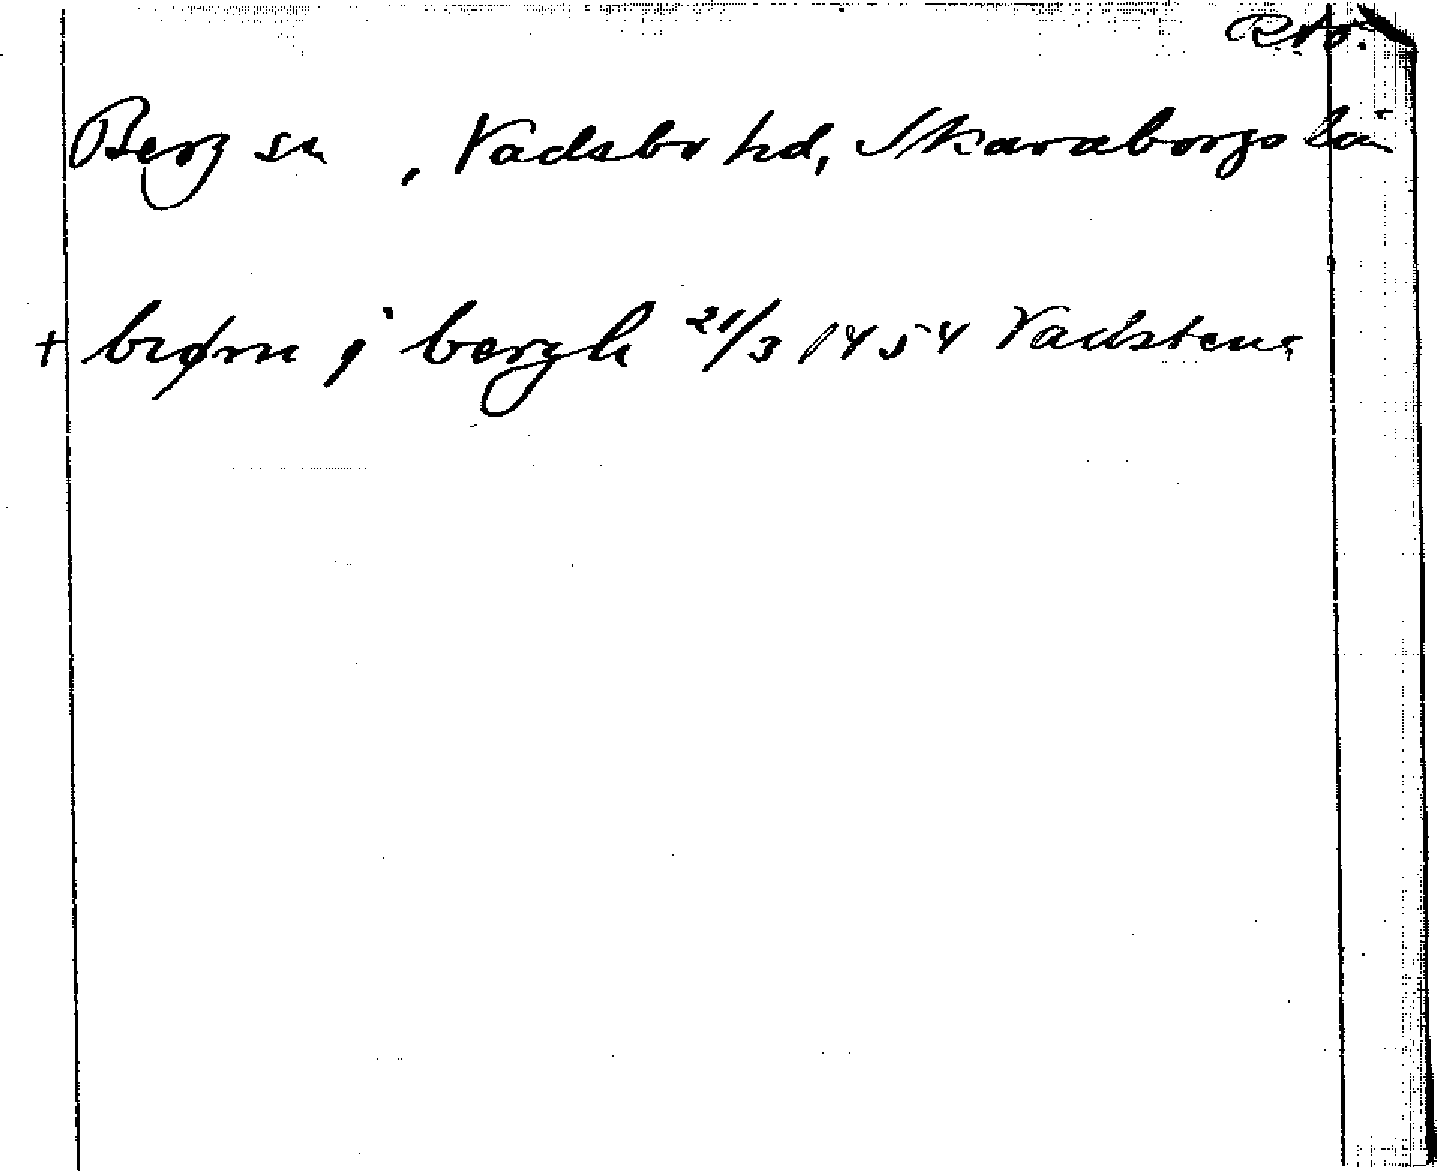 Berg sn, Vadsbo hd, Skaraborgs län
+ biørn j bergh 21/3 1454 Vadstena